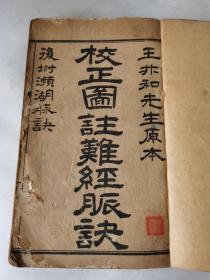 王朩和先生原本
校正圖註難經脈訣
後附瀕湖脈訣